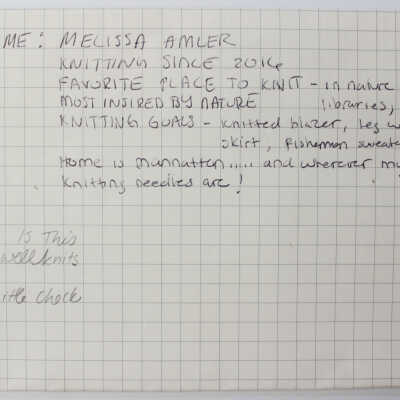 ME: MELISSA AMLER
KNITTING SINCE 2014
FAVORITE PLACE TO KNIT - in nature
MOST INSIRED BY NATURE libraries,
KNITTING GOALS - knitted blazer, leg w
skirt, fisherman sweate
Home is manhatten..... and wherever my
knitting needles are!
Is This
wellknits
ittle Check